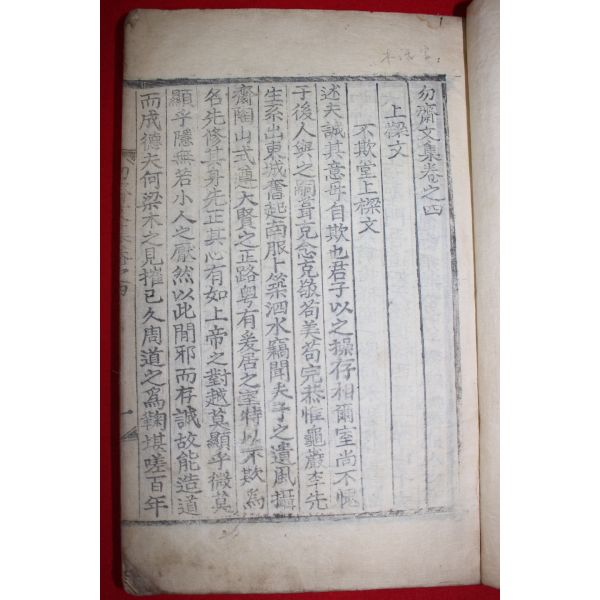 勿齋文集卷之四
上樑文
不欺堂上樑文
述夫誠其意毋自欺也君子以之操存相爾室尚不愧
于後人與之嗣葺克念克敬苟美苟完恭惟龜巖李先
生系出東城奮起南服卜築泗水竊聞夫子之遺風攝
齋陶山式遵大賢之正路粤有爰居之室特以不欺爲
名先修其身先正其心有如上帝之對越莫顯乎微莫
顯乎隱無若小人之厭然以此閒邪而存誠故能造道
而成德夫何梁木之見摧已久周道之爲鞠堪嗟百年